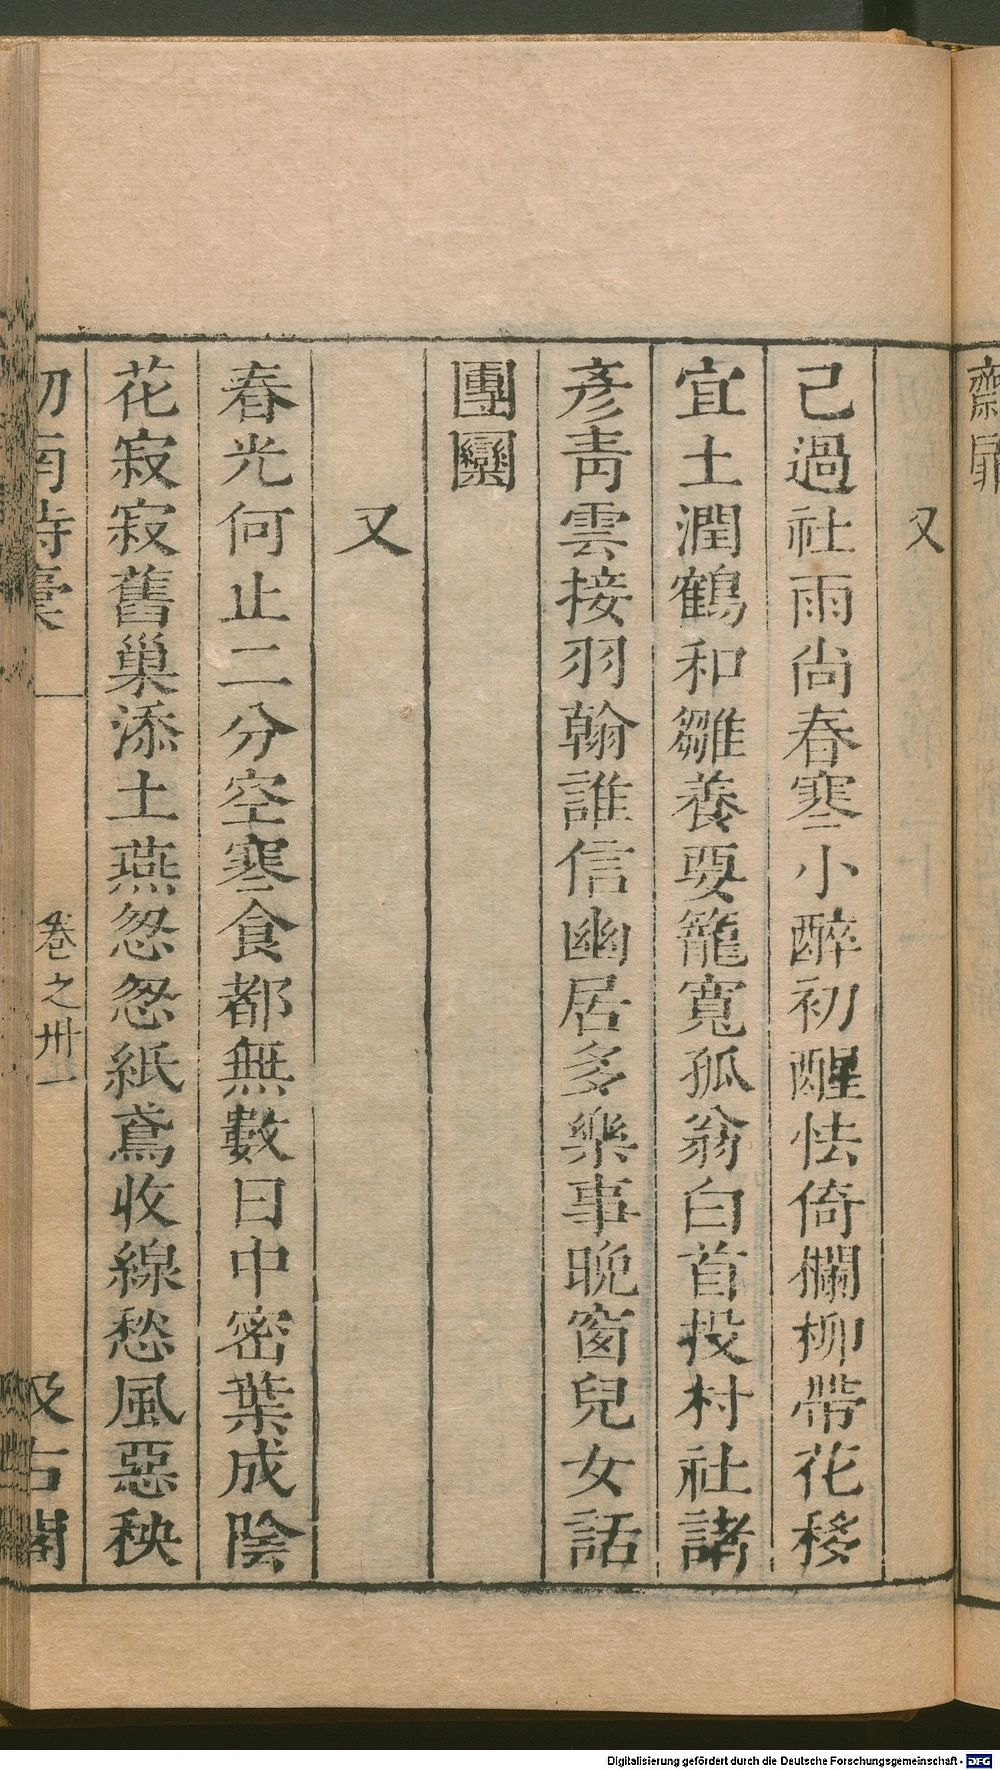 齋扉
又
己過社雨尚春寒小醉初醒怯倚欄柳帶花移
宜土潤鶴和雛養要籠寬孤翁白首投村社諸
彥青雲接羽翰誰信幽居多樂事晚窗兒女話
團圞
又
春光何止二分空寒食都無數日中密葉成陰
花寂寂舊巢添土燕怱怱紙鳶收線愁風惡秧
劒南詩稾 卷之卅一 汲古閣
Digitalisierung gefördert durch die Deutsche Forschungsgemeinschaft - DFG